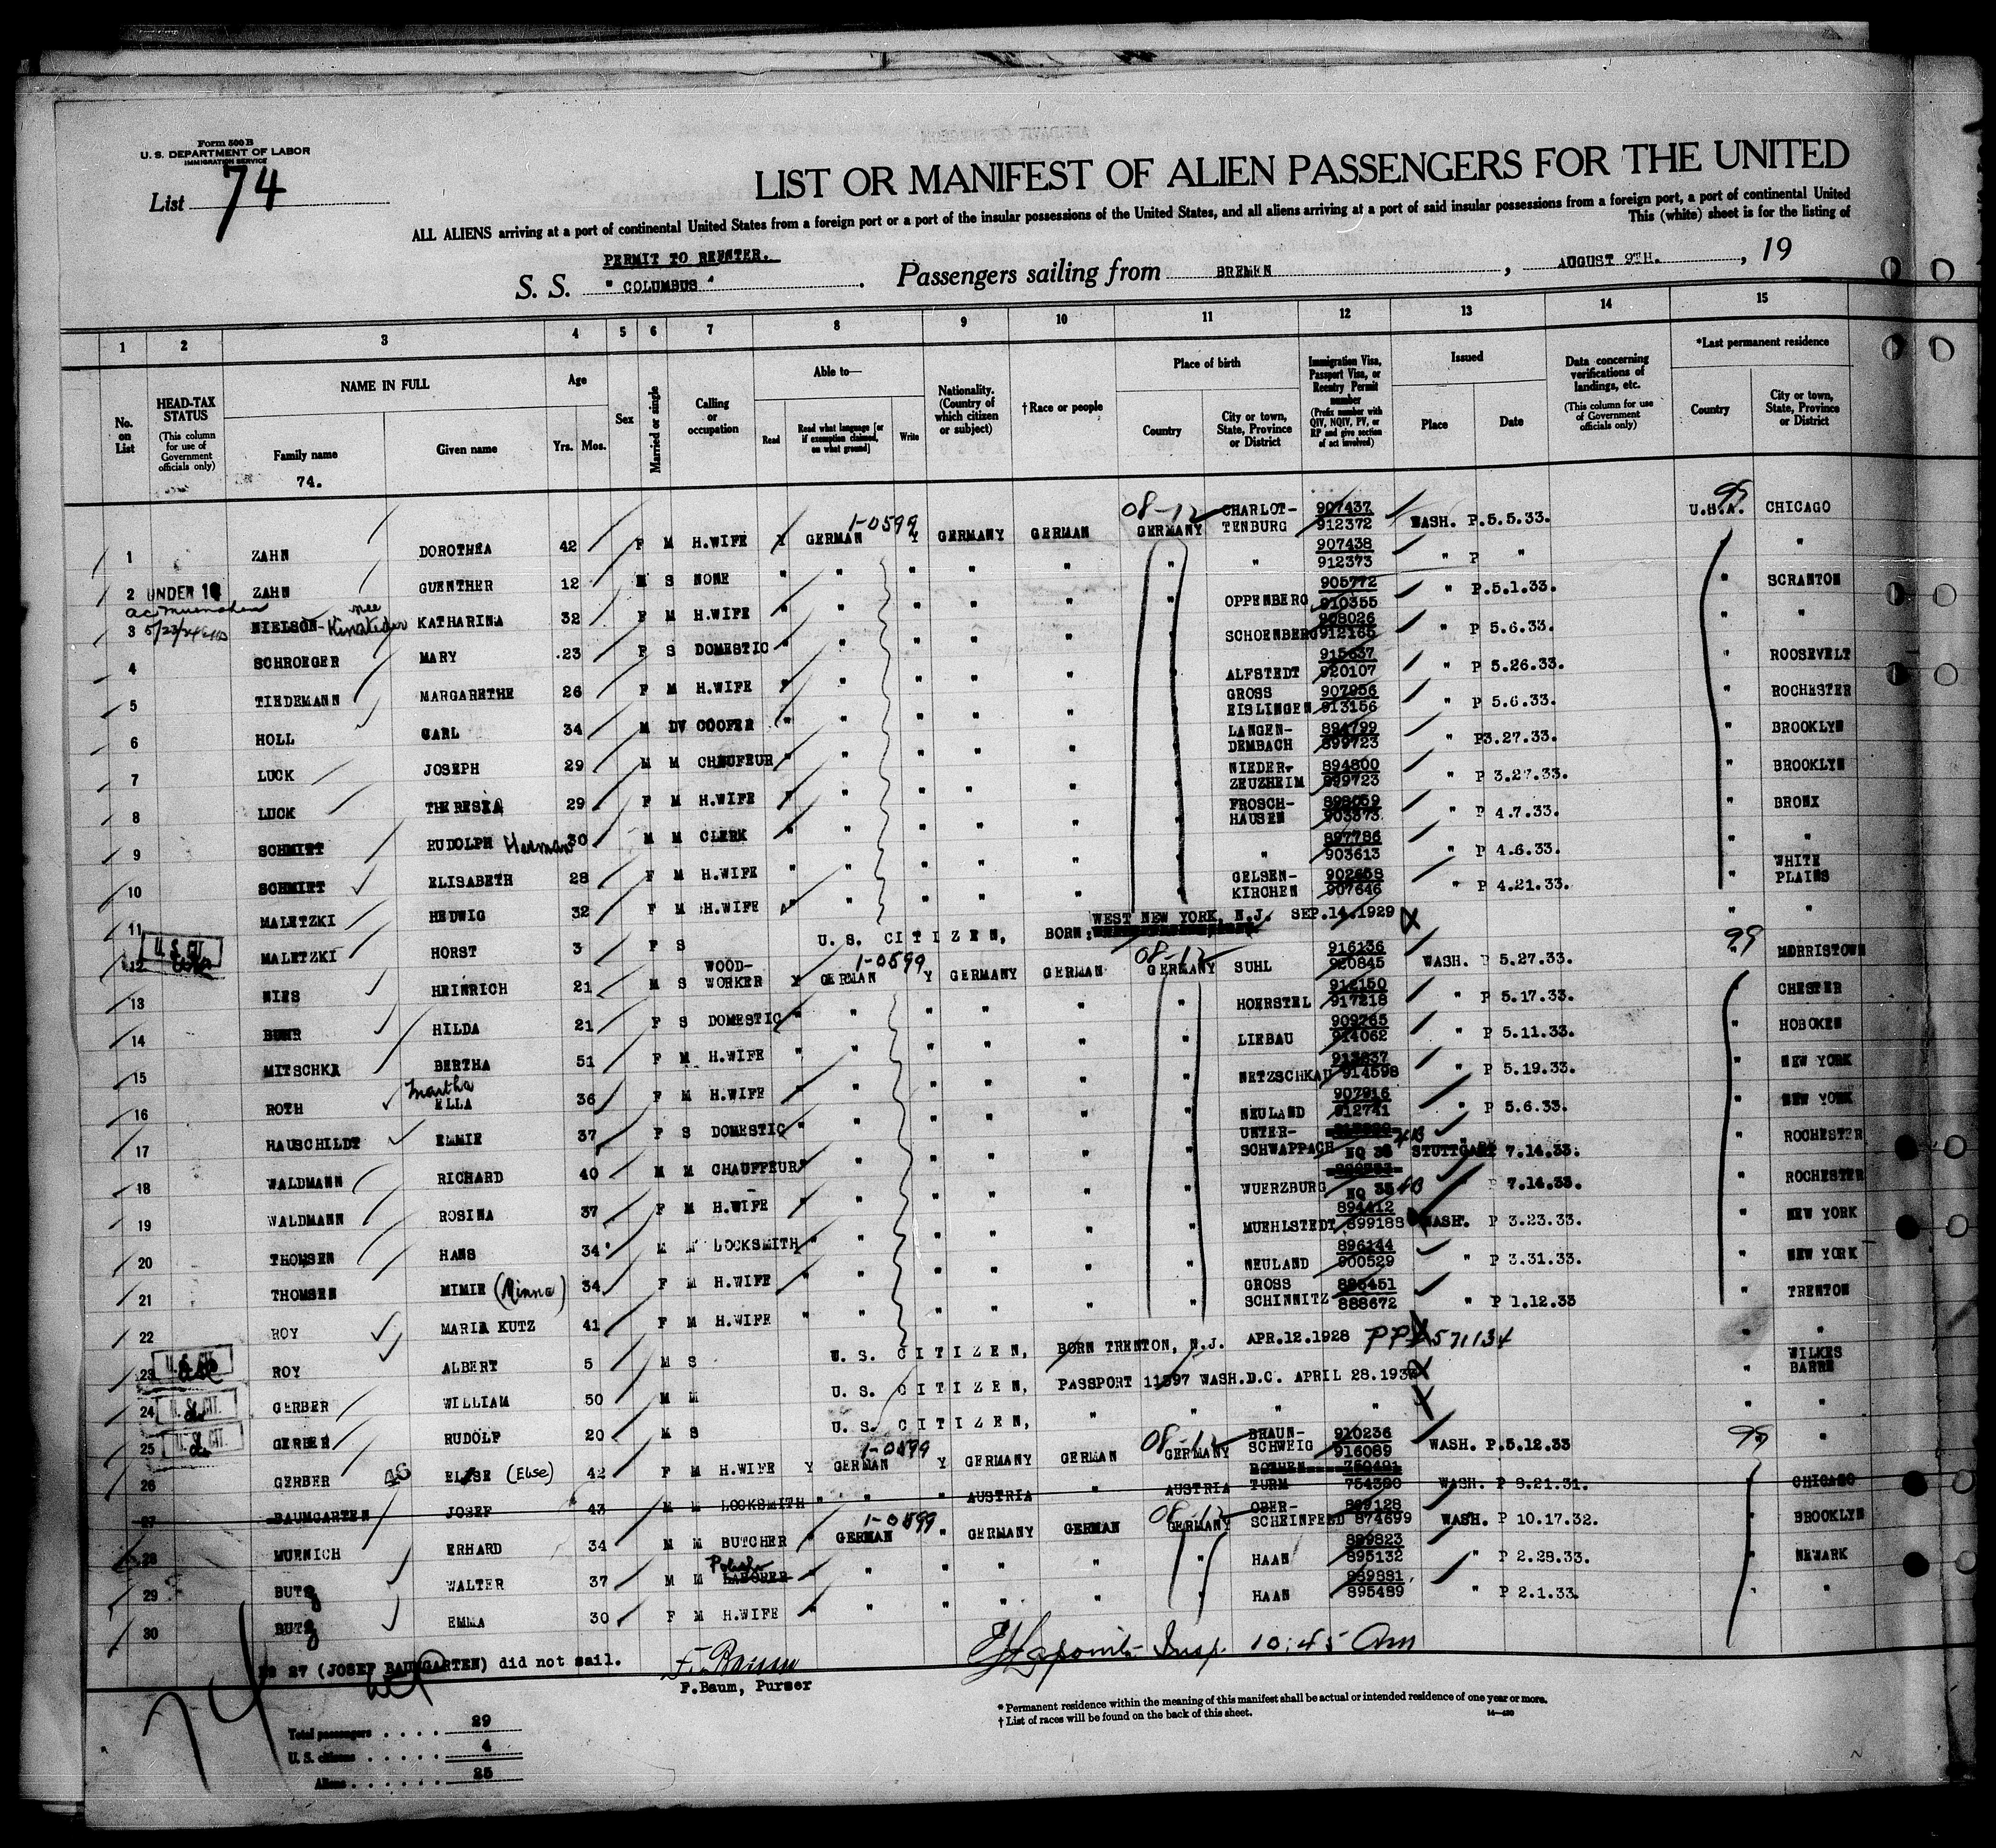 Form 500 B
U. S. DEPARTMENT OF LABOR
IMMIGRATION SERVICE
List 74
LIST OR MANIFEST OF ALIEN PASSENGERS FOR THE UNITED
ALL ALIENS arriving at a port of continental United States from a foreign port or a port of the insular possessions of the United States, and all aliens arriving at a port of said insular possessions from a foreign port, a port of continental United
This (white) sheet is for the listing of
PERMIT TO REENTER.
S. S. " COLUMBUS " . Passengers sailing from BREMEN , AUGUST 9TH. , 19
1 2 3 4 5 6 7 8 9 10 11 12 13 14 15
No. on List
HEAD-TAX STATUS
(This column for use of Government officials only)
NAME IN FULL
Family name
Given name
74.
Age
Yrs. Mos.
Sex
Married or single
Calling or occupation
Able to—
Read
Read what language [or if exemption claimed, on what ground]
Write
Nationality. (Country of which citizen or subject)
† Race or people
Place of birth
Country
City or town, State, Province or District
Immigration Visa, Passport Visa, or Reentry Permit number
(Prefix number with QIV, NQIV, PV, or RP and give section of act involved)
Issued
Place
Date
Data concerning verifications of landings, etc.
(This column for use of Government officials only)
*Last permanent residence
Country
City or town, State, Province or District
1 ZAHN DOROTHEA 42 F M H.WIFE Y GERMAN 1-0599 Y GERMANY GERMAN 08-12 GERMANY CHARLOT-TENBURG 907437 912372 WASH. P.5.5.33. 99 U.S.A. CHICAGO
2 UNDER 16 ZAHN GUENTHER 12 M S NONE " " " " " " " 907438 912373 " P " "
3 5/23/24 NIELSON- nee KATHARINA 32 F M H.WIFE " " " " " " OPPENBERG 905772 910355 " P.5.1.33. " SCRANTON
4 SCHROEGER MARY 23 F S DOMESTIC " " " " " " SCHOENBERG 908026 912165 " P 5.6.33. " "
5 TIEDEMANN MARGARETHE 26 F M H.WIFE " " " " " " ALFSTEDT 915637 920107 " P 5.26.33. " ROOSEVELT
6 HOLL CARL 34 M DV COOFER " " " " " " GROSS EISLINGEN 907956 913156 " P 5.6.33. " ROCHESTER
7 LUCK JOSEPH 29 M M CHAUFEUR " " " " " " LANGEN-DEMBACH 894799 899723 " P3.27.33. " BROOKLYN
8 LUCK THERESIA 29 F M H.WIFE " " " " " " NIEDER-ZEUZHEIM 894800 899723 " P 3.27.33. " BROOKLYN
9 SCHMITT RUDOLPH Herman 30 M M CLERK " " " " " " FROSCH-HAUSEN 903573 " P 4.7.33. " BRONX
10 SCHMITT ELISABETH 28 F M H.WIFE " " " " " " " 897786 903613 " P 4.6.33. " "
11 MALETZKI HEDWIG 32 F M H.WIFE " " " " " " GELSEN-KIRCHEN 902658 907646 " P 4.21.33. " WHITE PLAINS
12 U. S. CIT. MALETZKI HORST 3 F S U. S. CITIZEN, BORN: WEST NEW YORK, N.J. SEP.14.1929 " "
13 NIES HEINRICH 21 M S WOOD-WORKER Y GERMAN 1-0599 Y GERMANY GERMAN 08-12 GERMANY SUHL 916136 920845 WASH. P 5.27.33. 99 " MORRISTOWN
14 BUHR HILDA 21 F S DOMESTIC " " " " " " HOERSTEL 912150 917218 " P 5.17.33. CHESTER
15 MITSCHKA BERTHA 51 F M H.WIFE " " " " " " LIEBAU 909765 914062 " P 5.11.33. " HOBOKEN
16 ROTH Martha ELLA 36 F M H.WIFE " " " " " " NETZSCHKAU 914598 " P 5.19.33. " NEW YORK
17 HAUSCHILDT EMMIE 37 F S DOMESTIC " " " " " " NEULAND 907916 912741 " P 5.6.33. " NEW YORK
18 WALDMANN RICHARD 40 M M CHAUFFEUR " " " " " " UNTER-SCHWAPPACH NQ 36 STUTTGART 7.14.33. " ROCHESTER
19 WALDMANN ROSINA 37 F M H.WIFE " " " " " " WUERZBURG NQ 35 " P 7.14.33. " ROCHESTER
20 THOMSEN HANS 34 M M LOCKSMITH " " " " " " MUEHLSTEDT 894412 899188 WASH. P 3.23.33. " NEW YORK
21 THOMSEN MIMIE (Minna) 34 F M H.WIFE " " " " " " NEULAND 896144 900529 " P 3.31.33. " NEW YORK
22 ROY MARIA KUTZ 41 F M H.WIFE " " " " " " GROSS SCHINNITZ 888672 " P 1.12.33 " TRENTON
23 U. S. CIT. ROY ALBERT 5 M S U. S. CITIZEN, BORN TRENTON, N.J. APR.12.1928 PP 571134 " "
24 U. S. CIT. GERBER WILLIAM 50 M M U. S. CITIZEN, PASSPORT 11597 WASH.D.C. APRIL 28.193 " WILKES BARRE
25 U. S. CIT. GERBER RUDOLF 20 M S U. S. CITIZEN, " " " " " "
26 GERBER 46 ELISE (Else) 42 F M H.WIFE Y GERMAN 1-0599 Y GERMANY GERMAN 08-12 GERMANY BRAUN-SCHWEIG 910236 916089 WASH. P.5.12.33 99 "
27 BAUMGARTEN JOSEF 43 M M LOCKSMITH " " " AUSTRIA " AUSTRIA ROTHEN-TURM 750491 754380 WASH. P 8.21.31. CHICAGO
28 MUENICH ERHARD 34 M M BUTCHER " GERMAN 1-0599 " GERMANY GERMAN 08-12 GERMANY OBER-SCHEINFELD 874699 WASH. P 10.17.32. " BROOKLYN
29 BUTZ WALTER 37 M M Polisher LABORER " " " " " " HAAN 889823 895132 " P 2.28.33. " NEWARK
30 BUTZ EMMA 30 F M H.WIFE " " " " " " HAAN 895489 " P 2.1.33. " "
27 (JOSEF BAUMGARTEN) did not sail.
F. Baum
F.Baum, Purser
Insp. 10:45 Am
74
Total passengers . . . . 29
U. S. citizens . . . . . 4
Aliens . . . . . . 25
* Permanent residence within the meaning of this manifest shall be actual or intended residence of one year or more.
† List of races will be found on the back of this sheet.
14—420